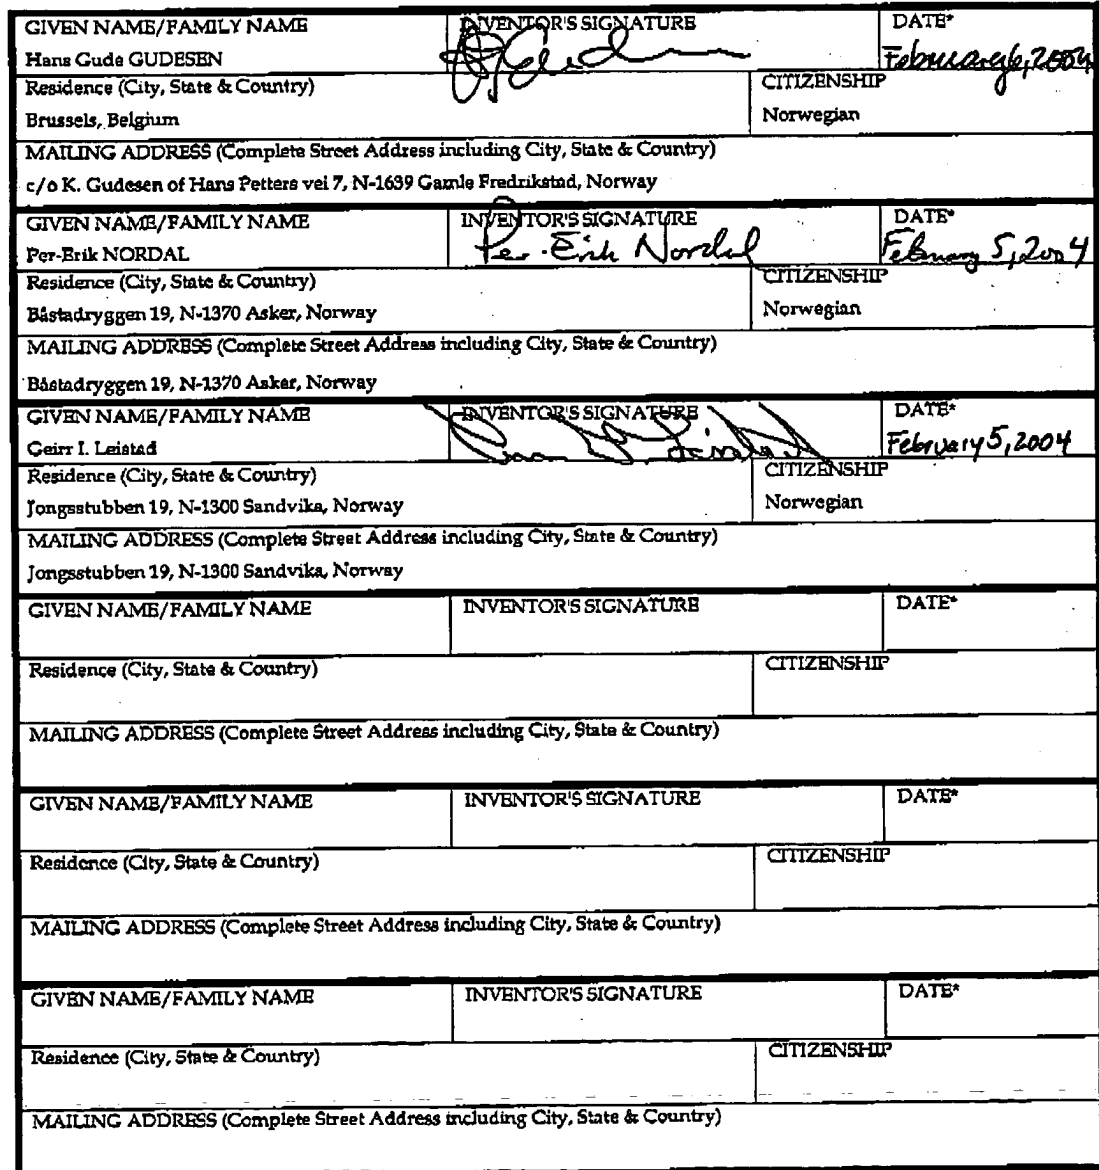 GIVEN NAME/FAMILY NAME INVENTOR'S SIGNATURE DATE*
Hans Gude GUDESEN February 6, 2004
Residence (City, State & Country) CITIZENSHIP
Brussels, Belgium Norwegian
MAILING ADDRESS (Complete Street Address including City, State & Country)
c/o K. Gudesen of Hans Petters vei 7, N-1639 Gamle Fredrikstad, Norway
GIVEN NAME/FAMILY NAME INVENTOR'S SIGNATURE DATE*
Per-Erik NORDAL Per-Erik Nordal February 5, 2004
Residence (City, State & Country) CITIZENSHIP
Båstadryggen 19, N-1370 Asker, Norway Norwegian
MAILING ADDRESS (Complete Street Address including City, State & Country)
Båstadryggen 19, N-1370 Asker, Norway
GIVEN NAME/FAMILY NAME INVENTOR'S SIGNATURE DATE*
Geirr I. Leistad February 5, 2004
Residence (City, State & Country) CITIZENSHIP
Jongsstubben 19, N-1300 Sandvika, Norway Norwegian
MAILING ADDRESS (Complete Street Address including City, State & Country)
Jongsstubben 19, N-1300 Sandvika, Norway
GIVEN NAME/FAMILY NAME INVENTOR'S SIGNATURE DATE*
Residence (City, State & Country) CITIZENSHIP
MAILING ADDRESS (Complete Street Address including City, State & Country)
GIVEN NAME/FAMILY NAME INVENTOR'S SIGNATURE DATE*
Residence (City, State & Country) CITIZENSHIP
MAILING ADDRESS (Complete Street Address including City, State & Country)
GIVEN NAME/FAMILY NAME INVENTOR'S SIGNATURE DATE*
Residence (City, State & Country) CITIZENSHIP
MAILING ADDRESS (Complete Street Address including City, State & Country)